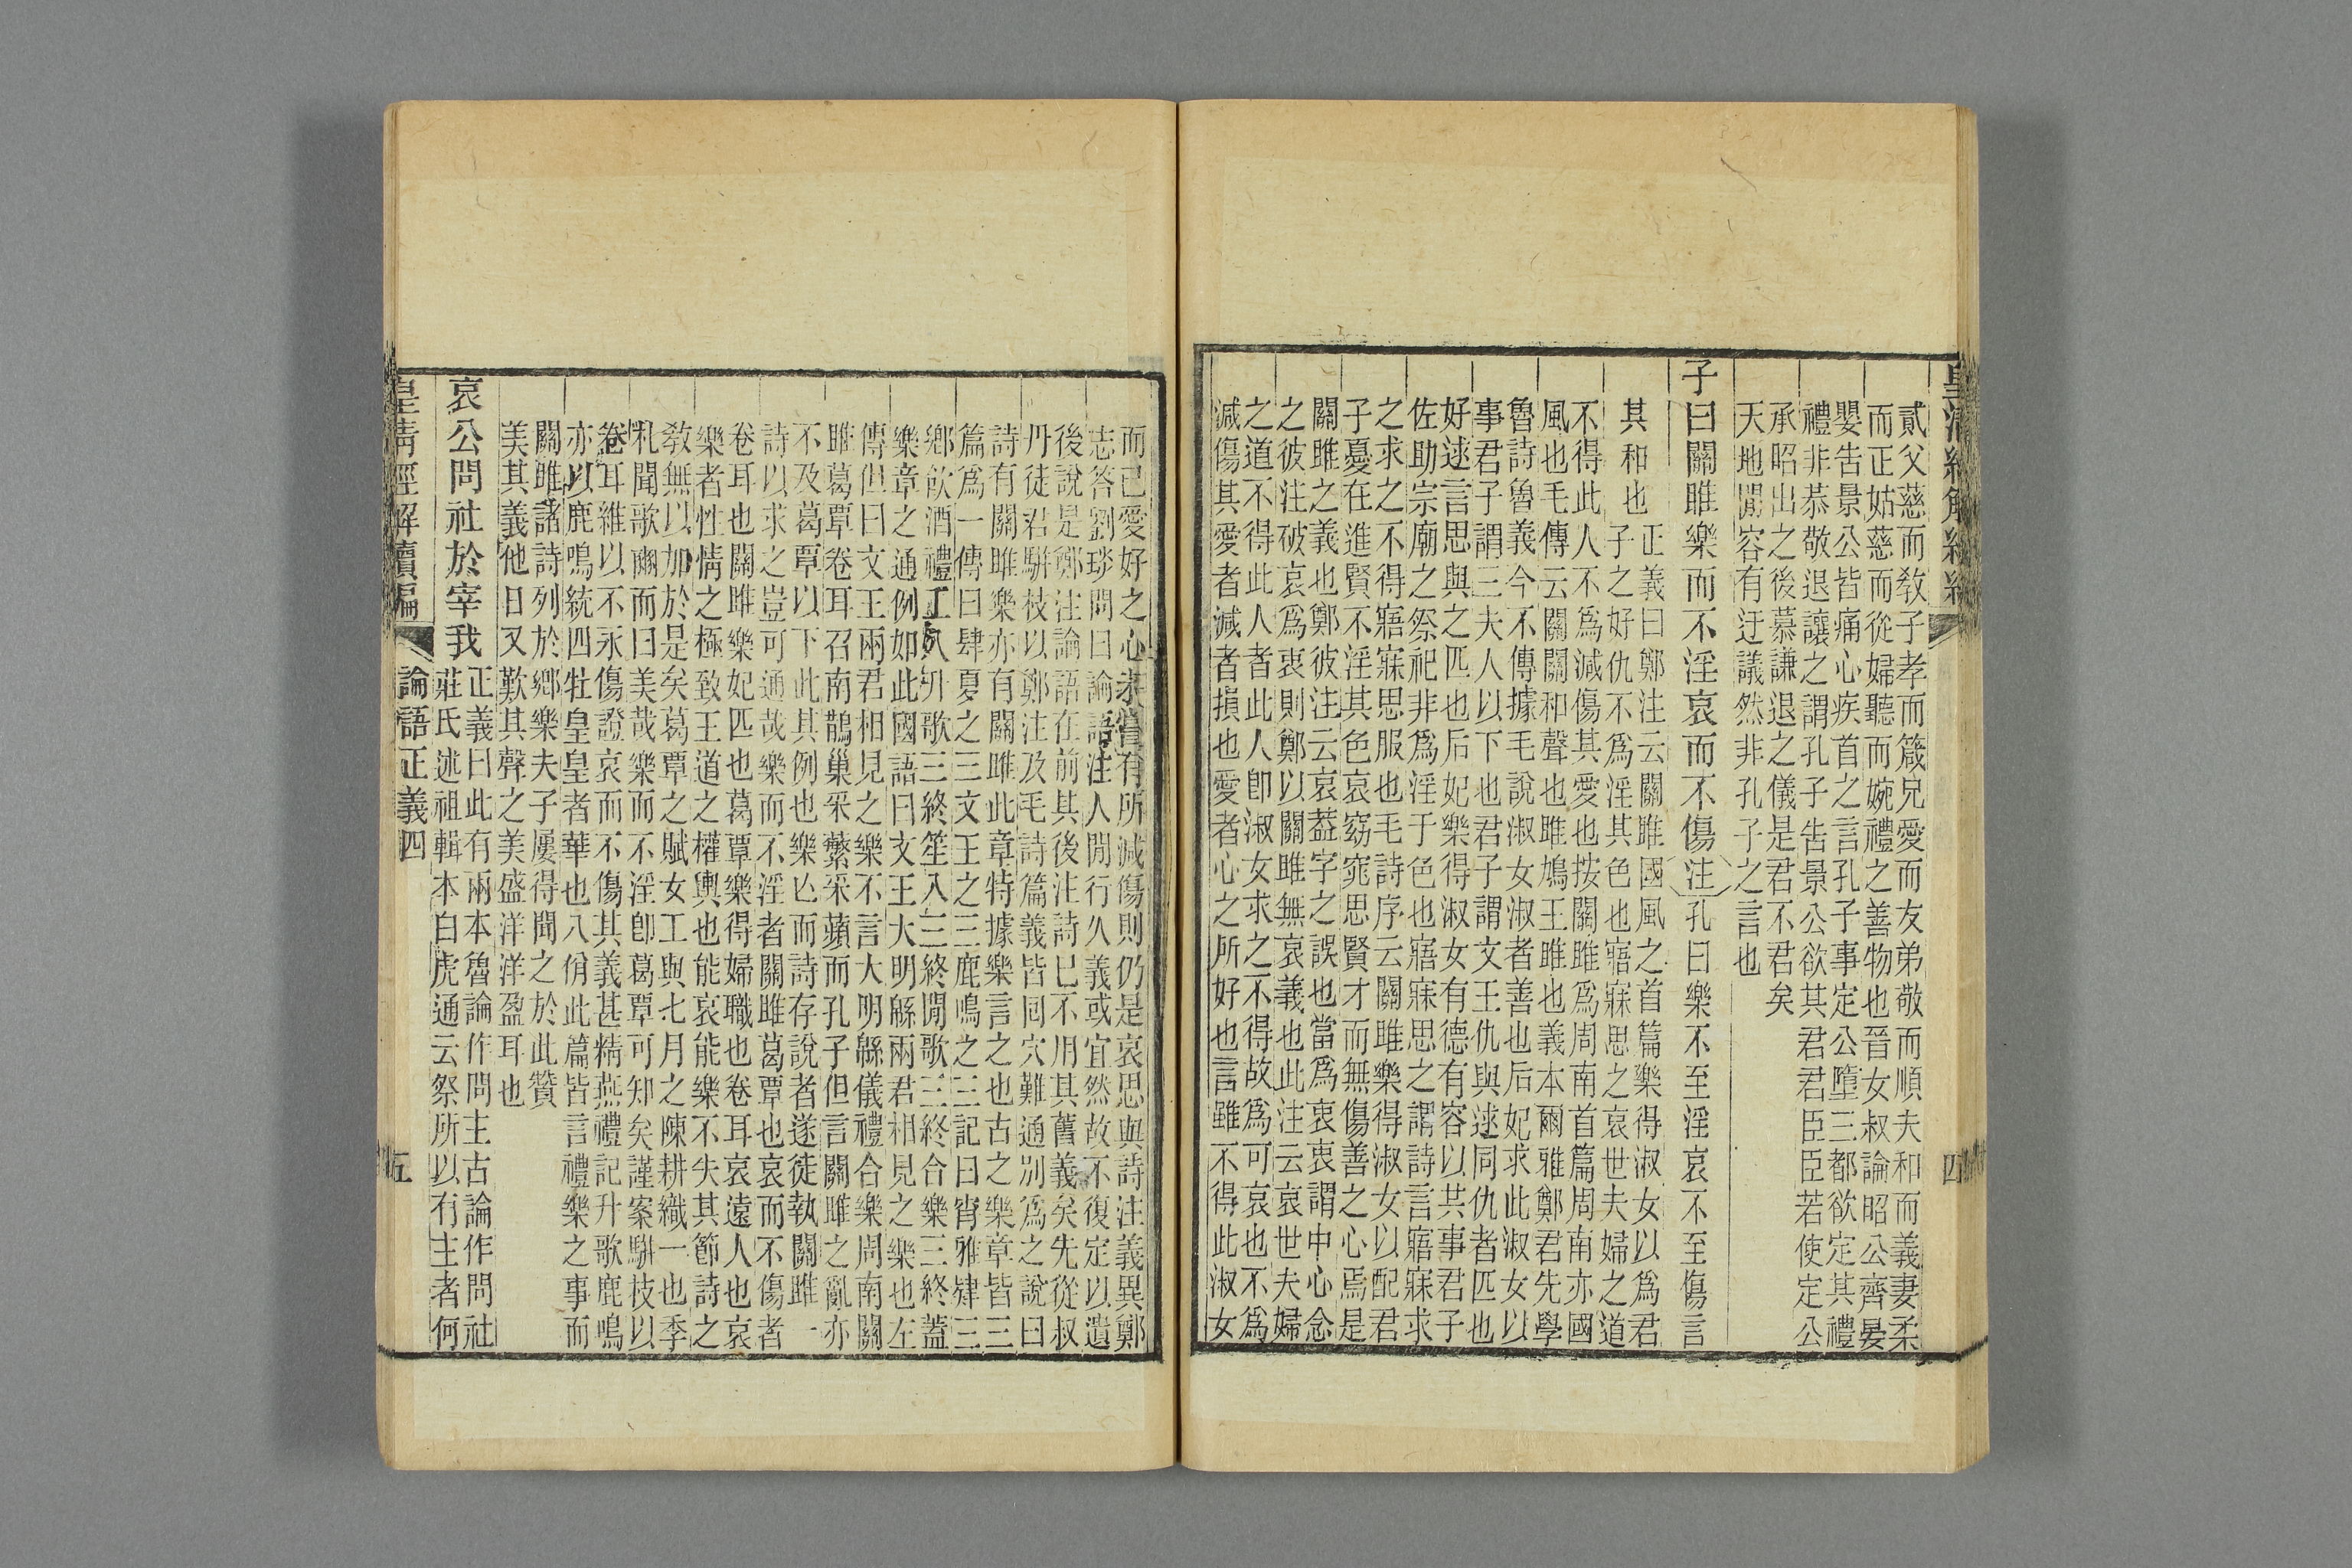 皇清經解續編 四
貳父慈而敎子孝而箴兄愛而友弟敬而順夫和而義妻柔
而正姑慈而從婦聽而婉禮之善物也晉女叔論昭公齊晏
嬰告景公皆痛心疾首之言孔子事定公墮三都欲定其禮
禮非恭敬退讓之謂孔子告景公欲其君君臣臣若使定公
承昭出之後慕謙退之儀是君不君矣
天地閒容有迂議然非孔子之言也
子曰關雎樂而不淫哀而不傷注孔曰樂不至淫哀不至傷言
其和也正義曰鄭注云關雎國風之首篇樂得淑女以爲君
子之好仇不爲淫其色也寤寐思之哀世夫婦之道
不得此人不爲減傷其愛也按關雎爲周南首篇周南亦國
風也毛傳云關關和聲也雎鳩王雎也義本爾雅鄭君先學
魯詩魯義今不傳據毛說淑女淑者善也后妃求此淑女以
事君子謂三夫人以下也君子謂文王仇與逑同仇者匹也
好逑言思與之匹也后妃樂得淑女有德有容以共事君子
佐助宗廟之祭祀非爲淫于色也寤寐思之謂詩言寤寐求
之求之不得寤寐思服也毛詩序云關雎樂得淑女以配君
子憂在進賢不淫其色哀窈窕思賢才而無傷善之心焉是
關雎之義也鄭彼注云哀葢字之誤也當爲衷衷謂中心念
之彼注破哀爲衷則鄭以關雎無哀義也此注云哀世夫婦
之道不得此人者此人卽淑女求之不得故爲可哀也不爲
減傷其愛者減者損也愛者心之所好也言雖不得此淑女
而已愛好之心未嘗有所減傷則仍是哀思與詩注義異鄭
志答劉琰問曰論語注人閒行久義或宜然故不復定以遺
後說是鄭注論語在前其後注詩已不用其舊義矣先從叔
丹徒君駢枝以鄭注及毛詩篇義皆同穴難通別爲之說曰
詩有關雎樂亦有關雎此章特據樂言之也古之樂章皆三
篇爲一傳曰肆夏之三文王之三鹿鳴之三記曰宵雅肄三
鄉飮酒禮工入升歌三終笙入三終閒歌三終合樂三終蓋
樂章之通例如此國語曰文王大明緜兩君相見之樂也左
傳但曰文王兩君相見之樂不言大明緜儀禮合樂周南關
雎葛覃卷耳召南鵲巢采蘩采蘋而孔子但言關雎之亂亦
不及葛覃以下此其例也樂亡而詩存說者遂徒執關雎一
詩以求之豈可通哉樂而不淫者關雎葛覃也哀而不傷者
卷耳也關雎樂妃匹也葛覃樂得婦職也卷耳哀遠人也哀
樂者性情之極致王道之權輿也能哀能樂不失其節詩之
敎無以加於是矣葛覃之賦女工與七月之陳耕織一也季
札聞歌豳而曰美哉樂而不淫卽葛覃可知矣謹案駢枝以
卷耳維以不永傷證哀而不傷其義甚精燕禮記升歌鹿鳴
亦以鹿鳴統四牡皇皇者華也八佾此篇皆言禮樂之事而
關雎諸詩列於鄉樂夫子屢得聞之於此贊
美其義他日又歎其聲之美盛洋洋盈耳也
哀公問社於宰我正義曰此有兩本魯論作問主古論作問社
莊氏述祖輯本白虎通云祭所以有主者何
皇清經解續編 論語正義四 五